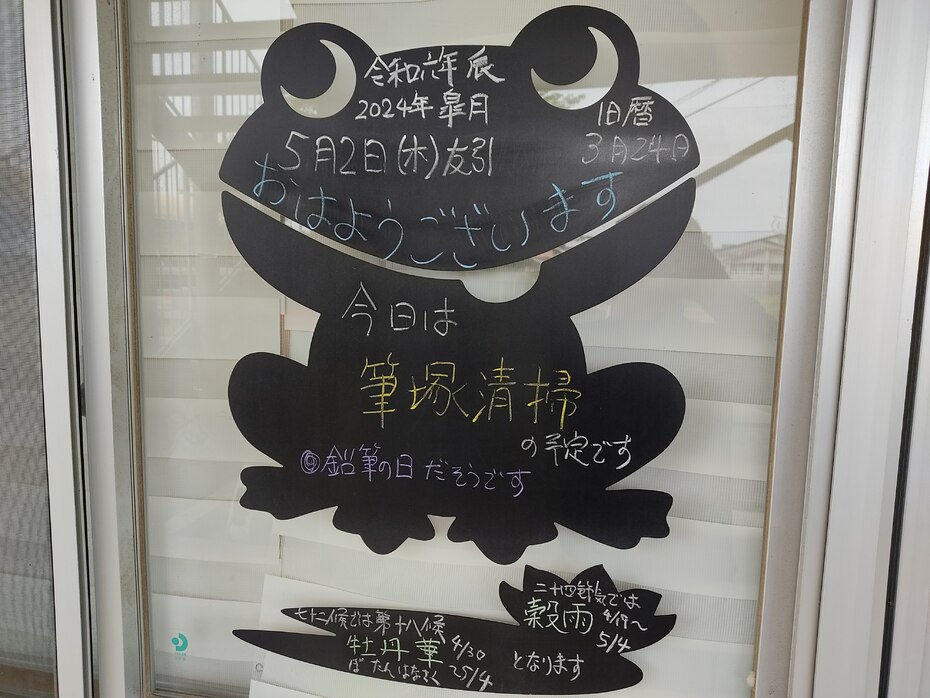 令和六年 辰
2024年 皐月
5月2日(木)友引
旧暦
3月24日
おはようございます
今日は
筆塚清掃
の予定です
◎鉛筆の日 だそうです
二十四節気では
穀雨 4/19〜
5/4
七十二候では第十八候
牡丹華 4/30
ぼたんはなさく 〜5/4
となります